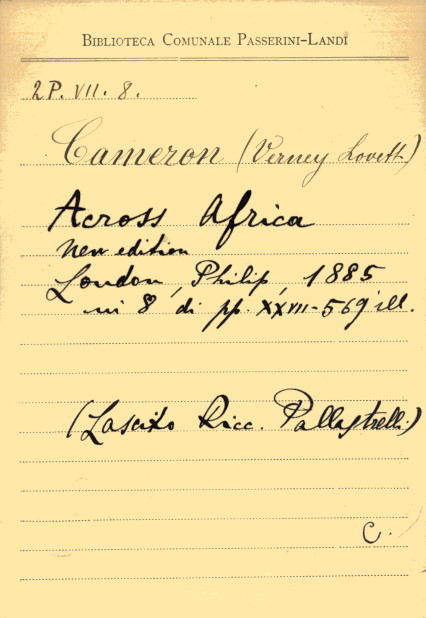 BIBLIOTECA COMUNALE PASSERINI-LANDI
2P. VII. 8.
Cameron (Verney Lovett)
Across Africa
New edition
London, Philip, 1885
in 8, di pp. XXVII-569 ill.
(Lascito Ricc. Pallastrelli.)
C.